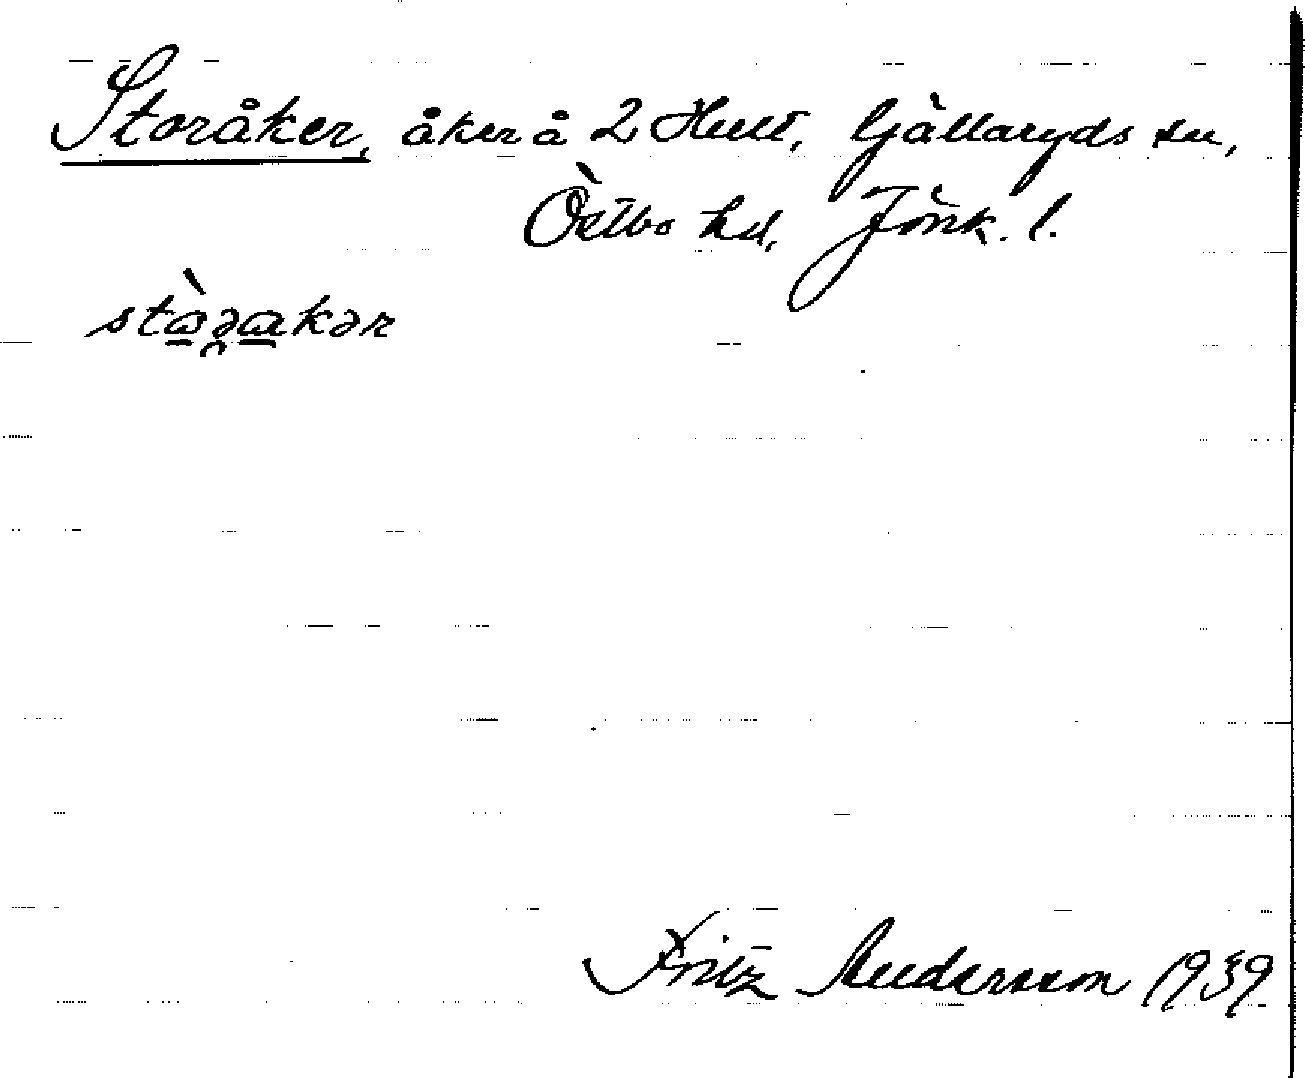 Storåker, åker å 2 Hult, Gällaryds sn,
Östbo hd, Jönk. l.
Fritz Andersson 1939